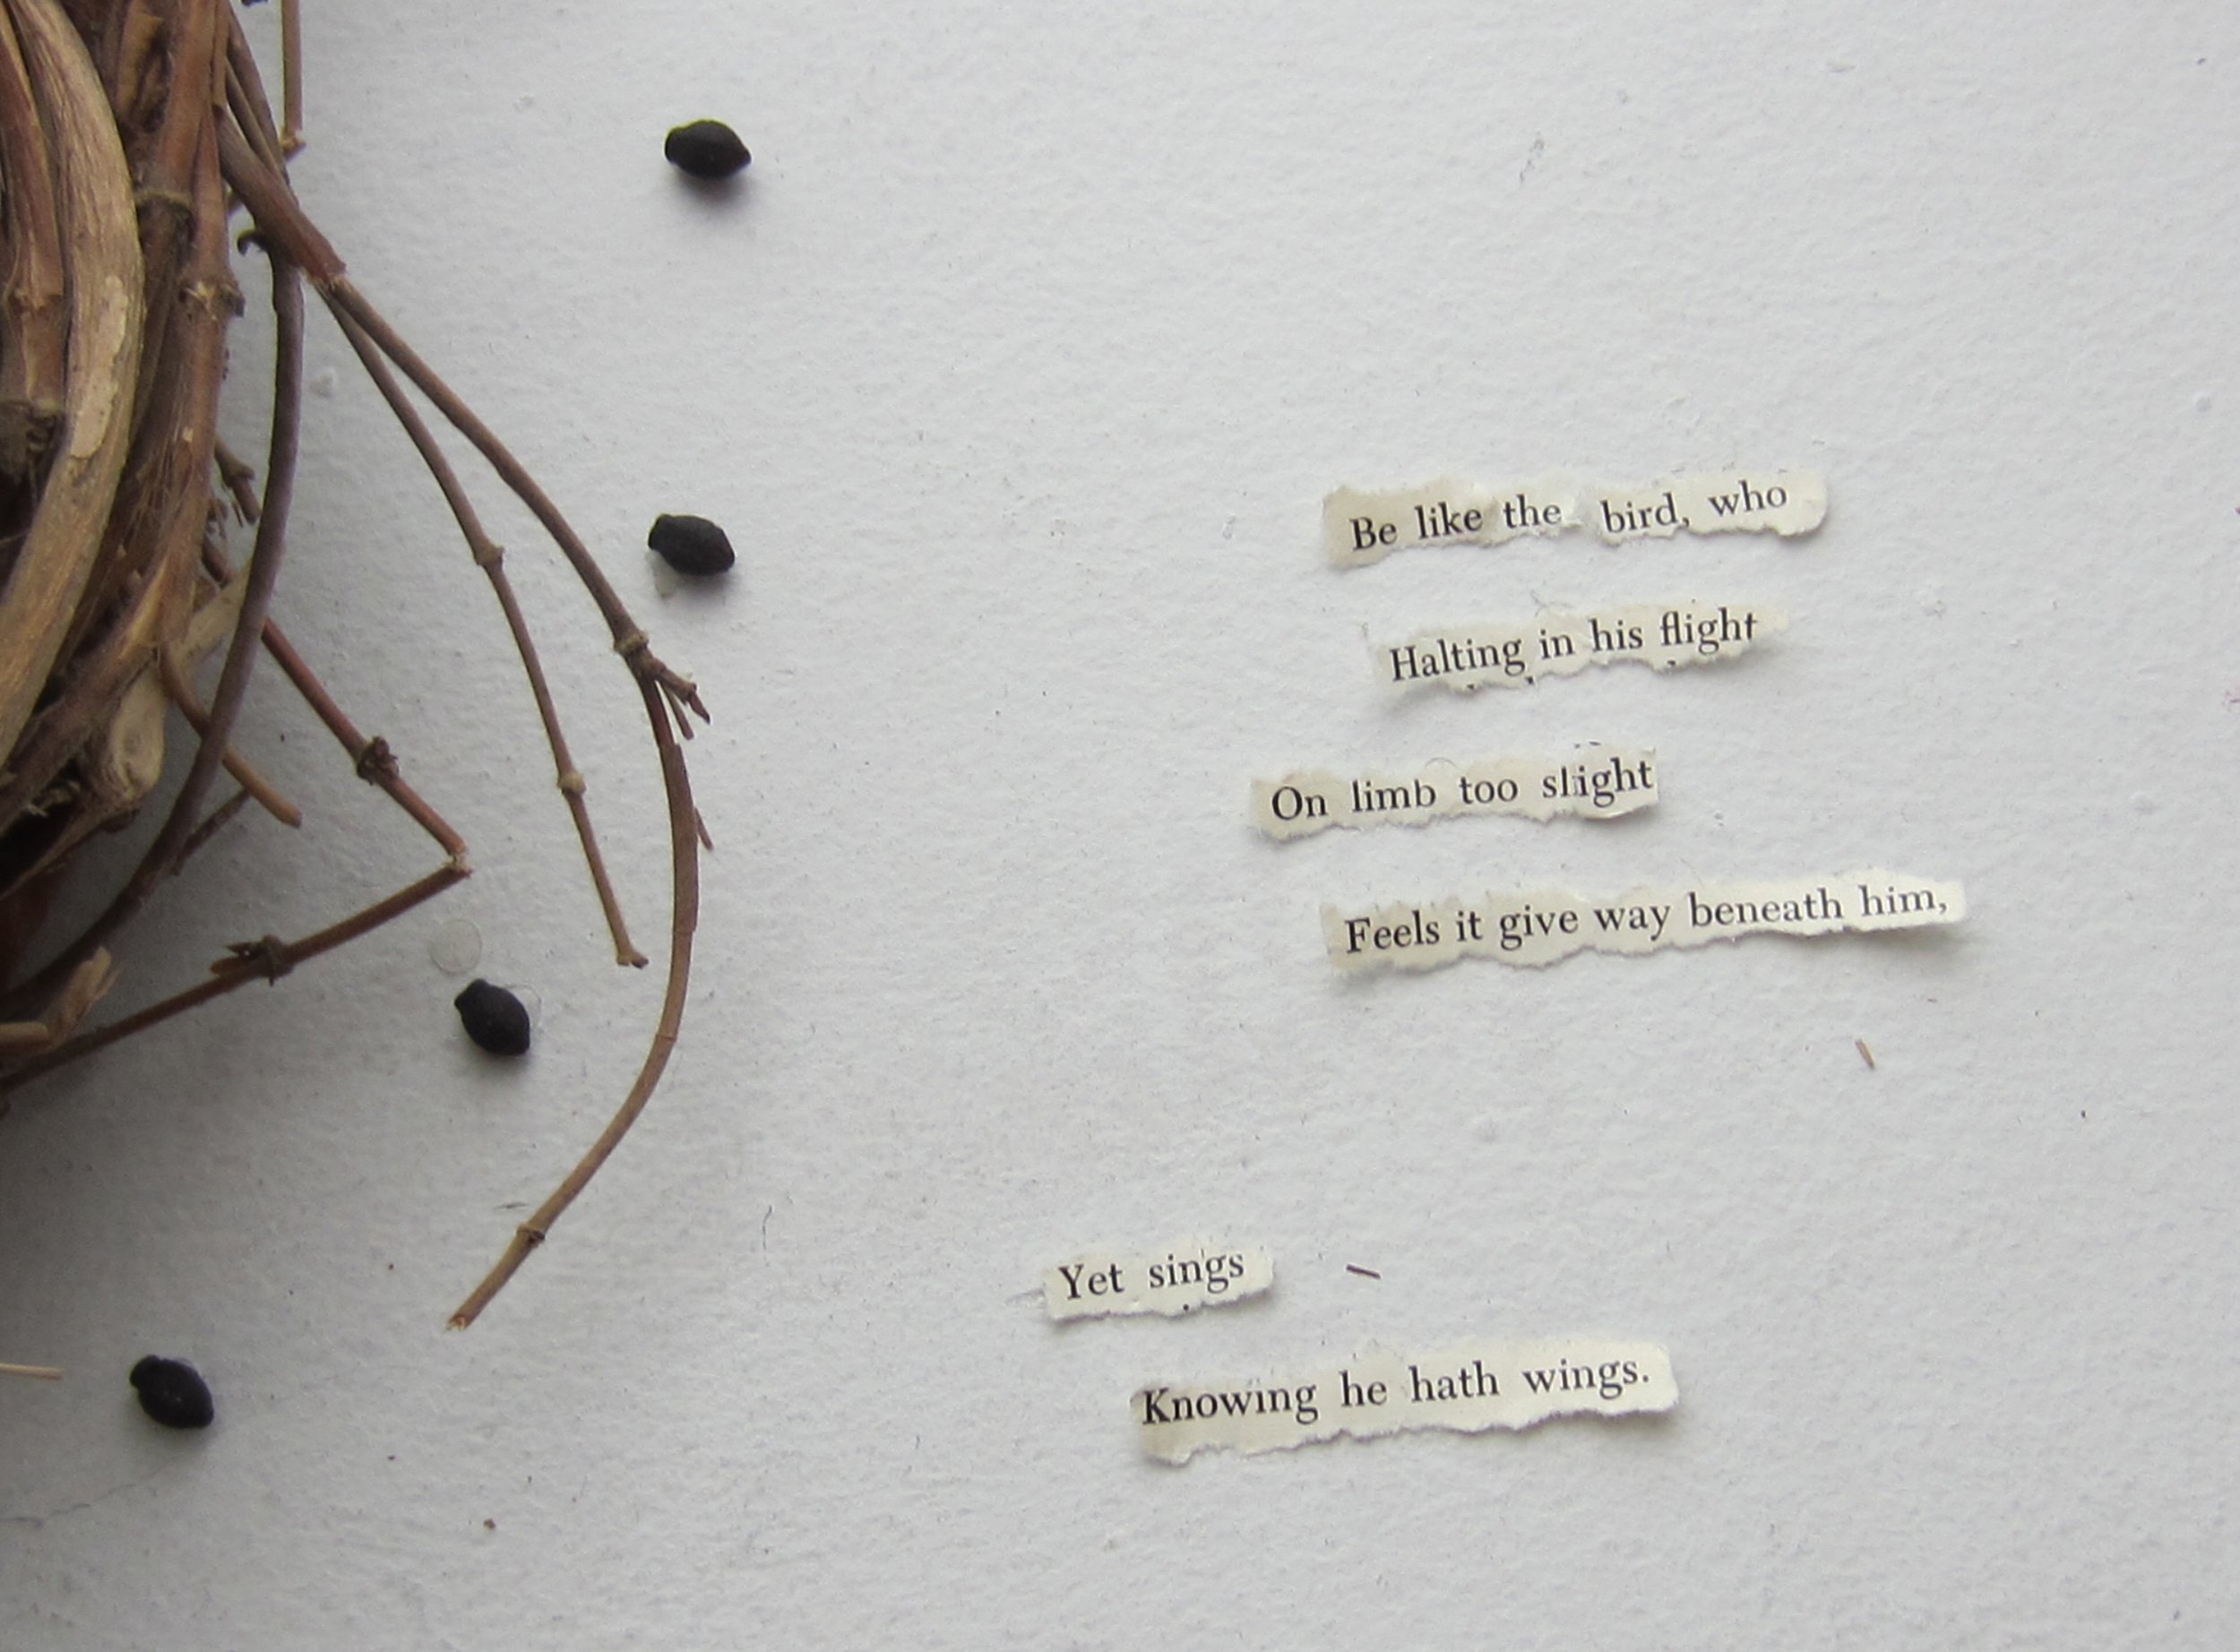 Be like the bird, who
Halting in his flight
On limb too slight
Feels it give way beneath him,
Yet sings
Knowing he hath wings.